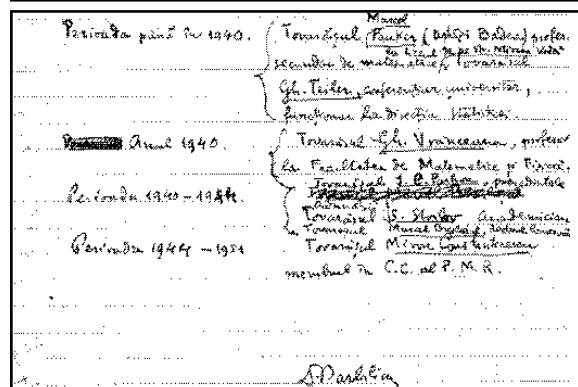 Marcel
Perioada până în 1940. Tovarășul Pauker (astăzi Badea) profesor
la liceul de pe str. Mircea Vodă
secundar de matematică, Tovarășul
Gh. Teiler, conferențiar universitar,
funcționar la direcția statistică.
Anul 1940. Tovarășul Gh. Vranceanu, profesor
la Facultatea de Matematică și Fizică.
Tovarășul
Perioada 1940-1944.
Tovarășul S. Stoilov, Academician
Tovarășul
Perioada 1944-1951 Tovarășul Miron Constantinescu
membru în C.C. al P.M.R.